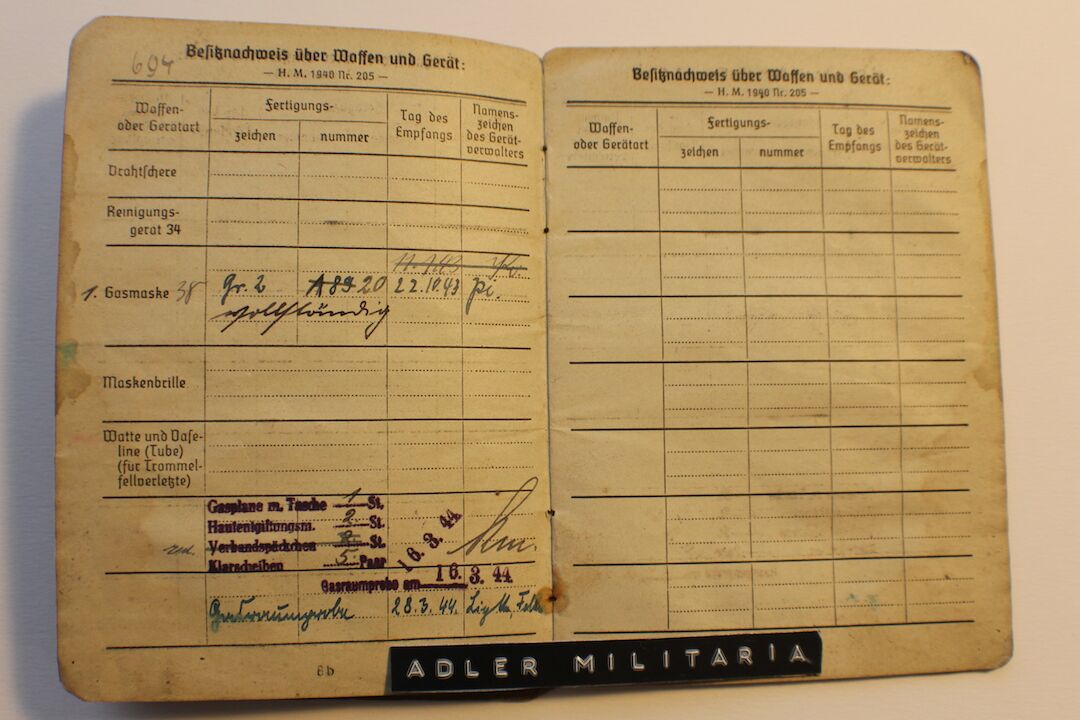 694
Besitznachweis über Waffen und Gerät:
— H. M. 1940 Nr. 205 —
Waffen-
oder Gerätart
Fertigungs-
zeichen
nummer
Tag des
Empfangs
Namens-
zeichen
des Gerät-
verwalters
Drahtschere
Reinigungs-
gerät 34
1. Gasmaske 38 Gr. 2 20 22.10.43 pi.
vollständig
Maskenbrille
Watte und Vase-
line (Tube)
(für Trommel-
fellverletzte)
Gasplane m. Tasche 1 St.
Hautentgiftungsm. 2 St.
Verbandspäckchen St.
Klarscheiben 5 Paar
16. 3. 44
Gasraumprobe am 16. 3. 44
Gasraumprobe 28.3.44.
8b
Besitznachweis über Waffen und Gerät:
— H. M. 1940 Nr. 205 —
Waffen-
oder Gerätart
Fertigungs-
zeichen
nummer
Tag des
Empfangs
Namens-
zeichen
des Gerät-
verwalters
ADLER MILITARIA